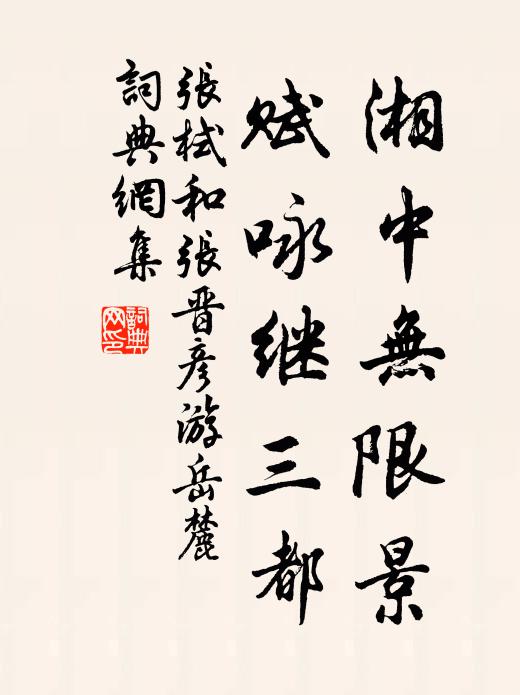 湘中無限景
赋咏继三都
張栻和張晋彦游岳麓
詞典網集
詞典
网印